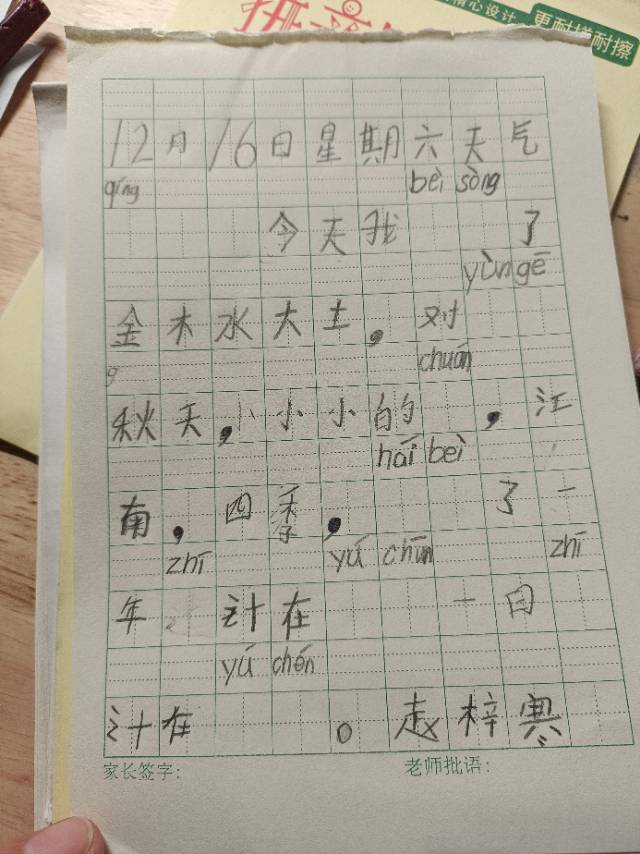 精心设计
更耐擦耐擦
12月16日星期六天气
qíng bèi sòng
今天我 了
yǔn gē
金木水大土，对
chuán
秋天，小小小的 ，江
hāi bèi
南，四季， 了一
zhī yú chūn zhī
年 计在 一日
yú chén
计在 。赵梓寒
家长签字： 老师批语：